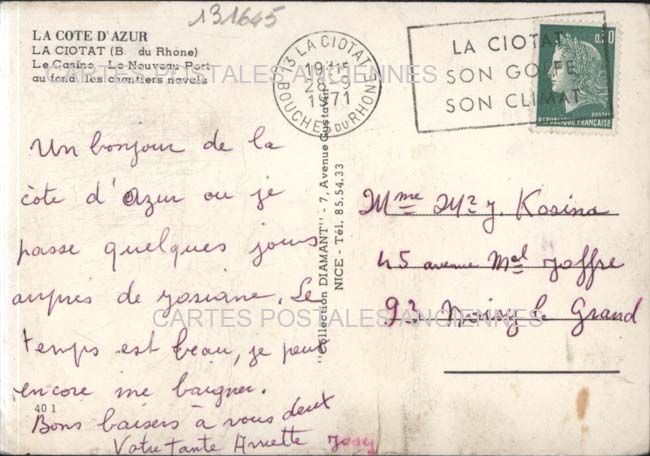 131645
LA COTE D'AZUR
LA CIOTAT (B. du Rhône)
Le Casino - Le Nouveau Port
au fond les chantiers navals
CARTES POSTALES ANCIENNES
13 LA CIOTAT
19H15
28-9
1971
BOUCHES DU RHONE
LA CIOTAT
SON GOLFE
SON CLIMAT
0,30
POSTES
REPUBLIQUE FRANÇAISE
Un bonjour de la
côte d'Azur ou je
passe quelques jours
auprès de Josiane. Le
temps est beau, je peux
encore me baigner.
Bons baisers à vous deux
Votre tante Arnette Josy
40 1
"Collection DIAMANT" - 7, Avenue Gustavin
NICE - Tél. 85.54.33
Mme Mr J. Kosina
45 avenue Mal Joffre
93 Noisy le Grand
CARTES POSTALES ANCIENNES